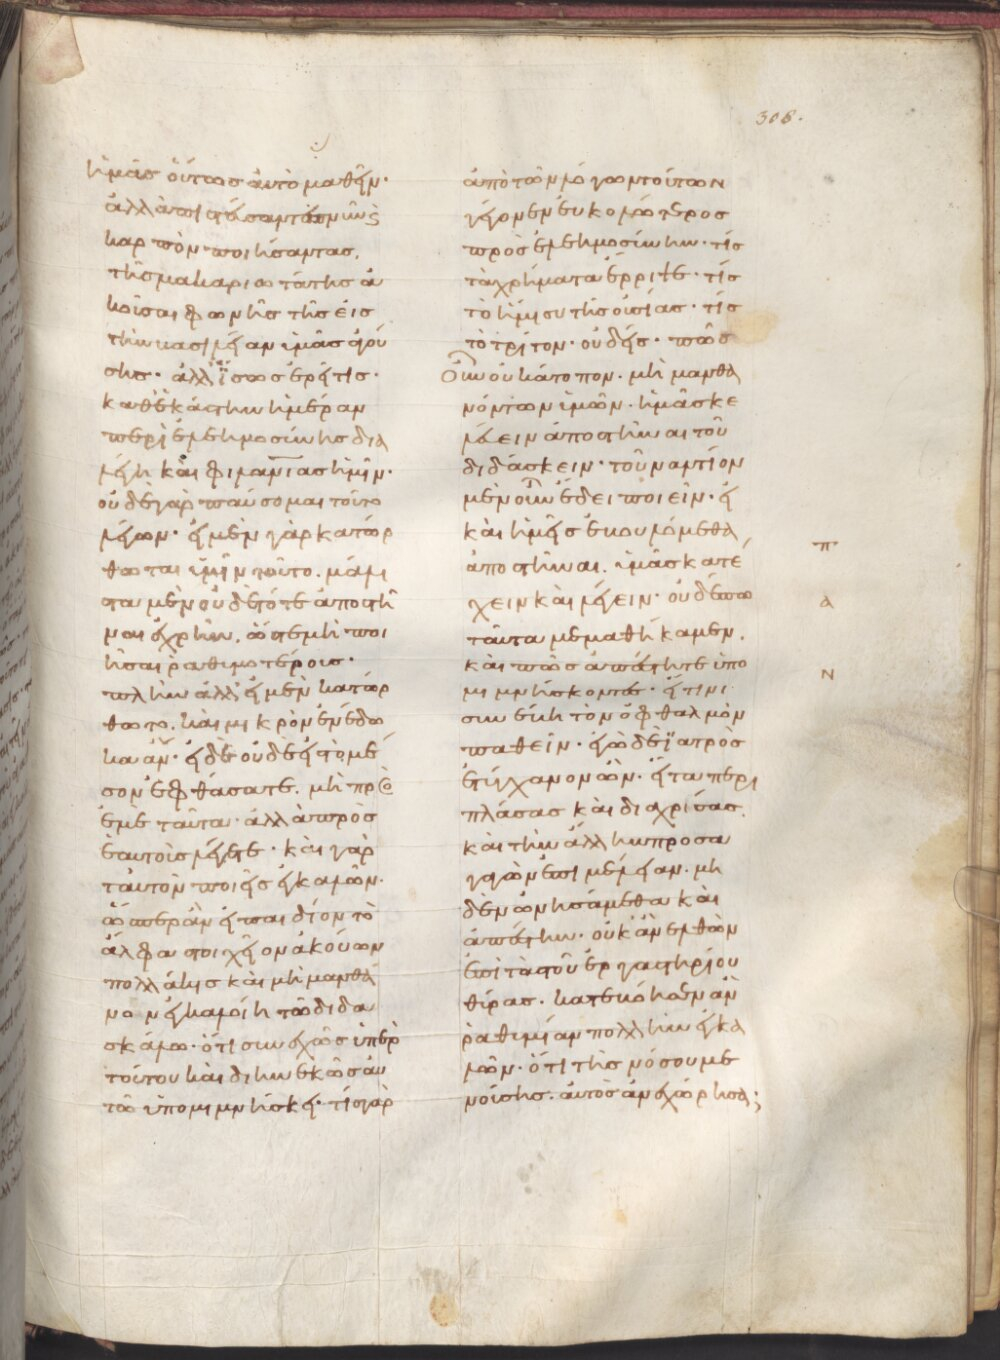 308.
ἡμᾶς οὕτως αὐτὸ μαθεῖν·
ἀλλὰ
καρπὸν ποιήσαντας,
τῆς μακαριωτάτης ἀ
κοῦσαι φωνῆς τῆς εἰς
τὴν βασιλείαν ἡμᾶς ἀγού
σης· ἀλλ ἴσως ἐρεῖ τις·
καθἑκάστην ἡμέραν
περὶ ἐλεημοσύνης δια
λέγη καὶ φιλανίας ἡμῖν·
οὐδὲ γὰρ παύσομαι τοῦτο
λέγων· εἰ μὲν γὰρ κατώρ
θωται ὑμῖν τοῦτο. μάλι
στα μὲν οὐδὲ τότε ἀποστῆ
ναι ἐχρῆν, ὥστε μὴ ποι
ῆσαι ῥαθυμοτέρους·
πλὴν ἀλλ εἰ μὲν κατώρ
θωτο. κἂν μικρὸν ἐνέδω
κα ἄν· εἰ δὲ οὐδὲ εἰς τὸ μέ
σον ἐφθάσατε. μὴ πρὸς
ἐμὲ ταῦτα· ἀλλὰ πρὸς
ἑαυτοὺς λέγετε· καὶ γὰρ
ταυτὸν ποιεῖς ἐγκαλῶν·
ὥσπερ ἂν εἰ παιδίον τὸ
ἄλφα στοιχεῖον ἀκούων
πολλάκις καὶ μὴ μανθά
νον ἐγκαλοίη τῶ διδα
σκάλω· ὅτι συνεχῶς ὑπὲρ
τούτου καὶ διηνεκῶς αὐ
τῶ ὑπομιμνήσκει· τίς γὰρ
ἀπὸ τῶν λόγων τούτων
γέγονεν εὐκολώτερος
πρὸς ἐλεημοσύνην· τίς
τὰ χρήματα ἔρριψε· τίς
τὸ ἥμισυ τῆς οὐσίας· τίς
τὸ τρίτον· οὐδείς· πῶς
οὖν οὐκ ἄτοπον. μὴ μανθα
νόντων ὑμῶν· ἡμᾶς κε
λεύειν ἀποστῆναι τοῦ
διδάσκειν· τοὐναντίον
μὲν οὖν ἔδει ποιεῖν· εἰ
καὶ ἡμεῖς ἐβουλόμεθα
ἀποστῆναι. ὑμᾶς κατέ
χειν καὶ λέγειν· οὐδέπω
ταῦτα μεμαθήκαμεν.
καὶ πῶς ἀπέστητε ὑπο
μιμνήσκοντες· εἴ τινι
συνέβη τὸν ὀφθαλμὸν
παθεῖν· ἐγὼ δὲ ἰατρὸς
ἐτύγχανον ὤν· εἶτα περι
πλάσας καὶ διαχρίσας
καὶ τὴν ἄλλην προσα
γαγὼν ἐπιμέλειαν. μη
δὲν ὠνησάμεθα καὶ
ἀπέστην· οὐκ ἂν ἐλθὼν
ἐπὶ τὰς τοῦ ἐργαστηρίου
θύρας. κατεβόησεν ἂν
ῥαθυμίαν πολλὴν ἐγκα
λῶν· ὅτι τῆς νόσου με
νούσης. αὐτὸς ἀνεχώρησα;
π
α
ν